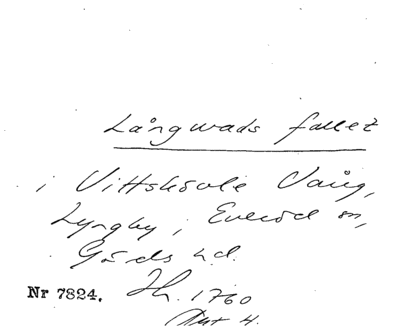 Långwads fallet
i Vittskövle Vång,
Lyngby, Everöd sn,
Gärds hd.
Nr 7824. Hh. 1760
Akt 4.